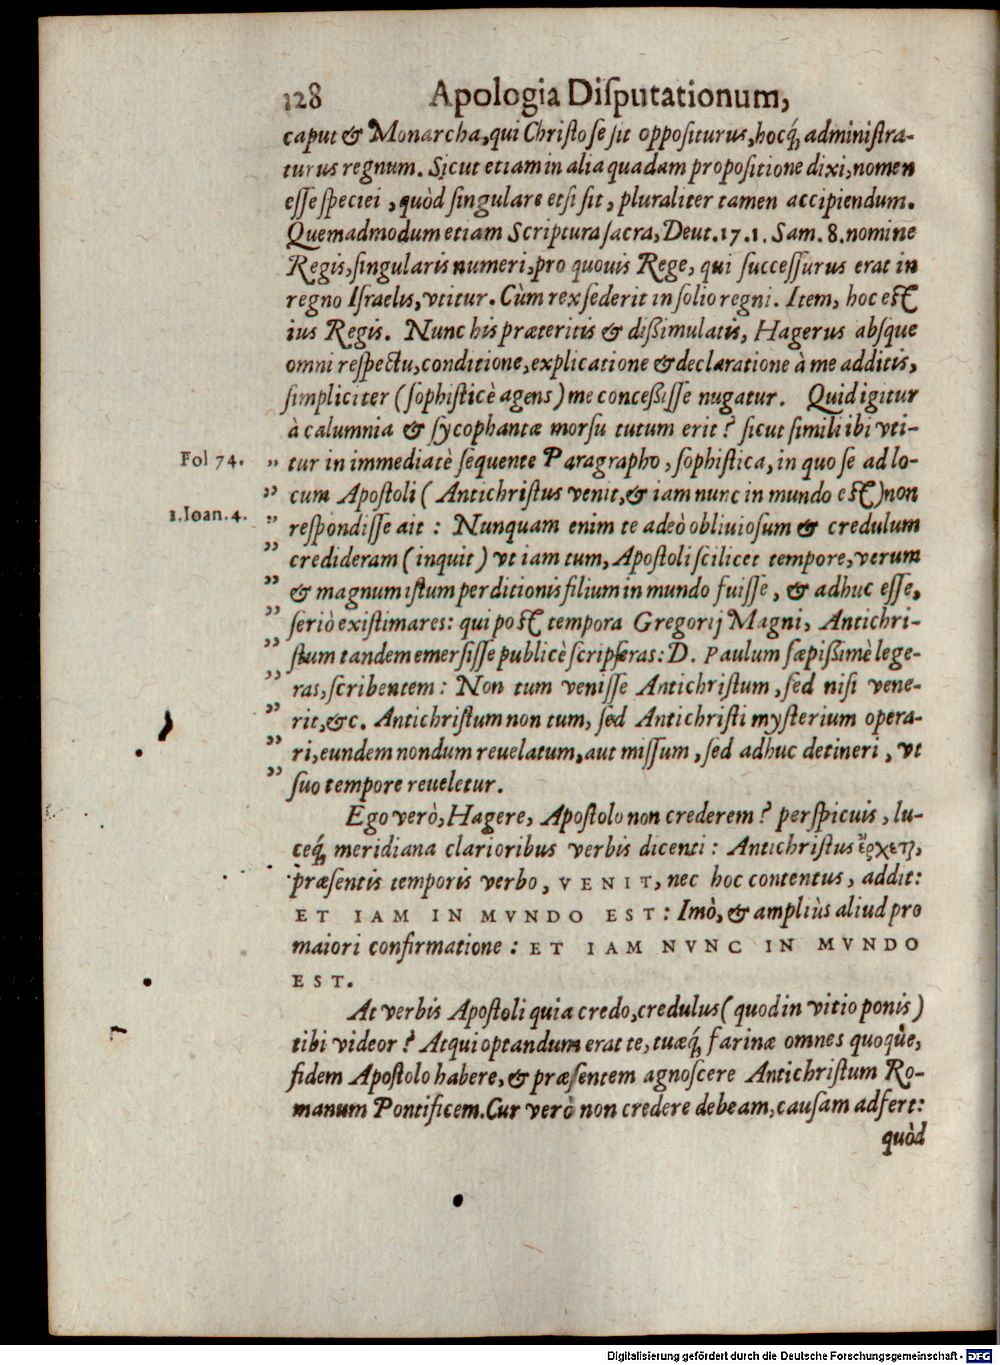 128 Apologia Diſputationum,
caput & Monarcha, qui Chriſto ſe ſit oppoſiturus, hocq́; adminiſtra-
turus regnum. Sicut etiam in alia quadam propoſitione dixi, nomen
eſſe ſpeciei, quòd ſingulare etſi ſit, pluraliter tamen accipiendum.
Quemadmodum etiam Scriptura ſacra, Deut. 17. 1. Sam. 8. nomine
Regis, ſingularis numeri, pro quouis Rege, qui ſucceſſurus erat in
regno Iſraelis, vtitur. Cùm rex ſederit in ſolio regni. Item, hoc eſt
ius Regis. Nunc his præteritis & dißimulatis, Hagerus abſque
omni reſpectu, conditione, explicatione & declaratione à me additis,
ſimpliciter (ſophiſticè agens) me conceßiſſe nugatur. Quid igitur
à calumnia & ſycophantæ morſu tutum erit? ſicut ſimili ibi vti-
Fol 74. „ tur in immediatè ſequente Paragrapho, ſophiſtica, in quo ſe ad lo-
„ cum Apoſtoli (Antichriſtus venit, & iam nunc in mundo eſt) non
1. Ioan. 4. „ reſpondiſſe ait: Nunquam enim te adeò obliuioſum & credulum
„ credideram (inquit) vt iam tum, Apoſtoli ſcilicet tempore, verum
„ & magnum iſtum perditionis filium in mundo fuiſſe, & adhuc eſſe,
„ ſeriò exiſtimares: qui poſt tempora Gregorij Magni, Antichri-
„ ſtum tandem emerſiſſe publicè ſcripſeras: D. Paulum ſæpißimè lege-
„ ras, ſcribentem: Non tum veniſſe Antichriſtum, ſed niſi vene-
„ rit, &c. Antichriſtum non tum, ſed Antichriſti myſterium opera-
„ ri, eundem nondum reuelatum, aut miſſum, ſed adhuc detineri, vt
„ ſuo tempore reueletur.
Ego verò, Hagere, Apoſtolo non crederem? perſpicuis, lu-
ceq́; meridiana clarioribus verbis dicenti: Antichriſtus ἔρχεται,
præſentis temporis verbo, VENIT, nec hoc contentus, addit:
ET IAM IN MVNDO EST: Imò, & ampliùs aliud pro
maiori confirmatione: ET IAM NVNC IN MVNDO
EST.
At verbis Apoſtoli quia credo, credulus (quod in vitio ponis)
tibi videor? Atqui optandum erat te, tuæq́; farinæ omnes quoque,
fidem Apoſtolo habere, & præſentem agnoſcere Antichriſtum Ro-
manum Pontificem. Cur verò non credere debeam, cauſam adfert:
quòd
Digitalisierung gefördert durch die Deutsche Forschungsgemeinschaft - DFG